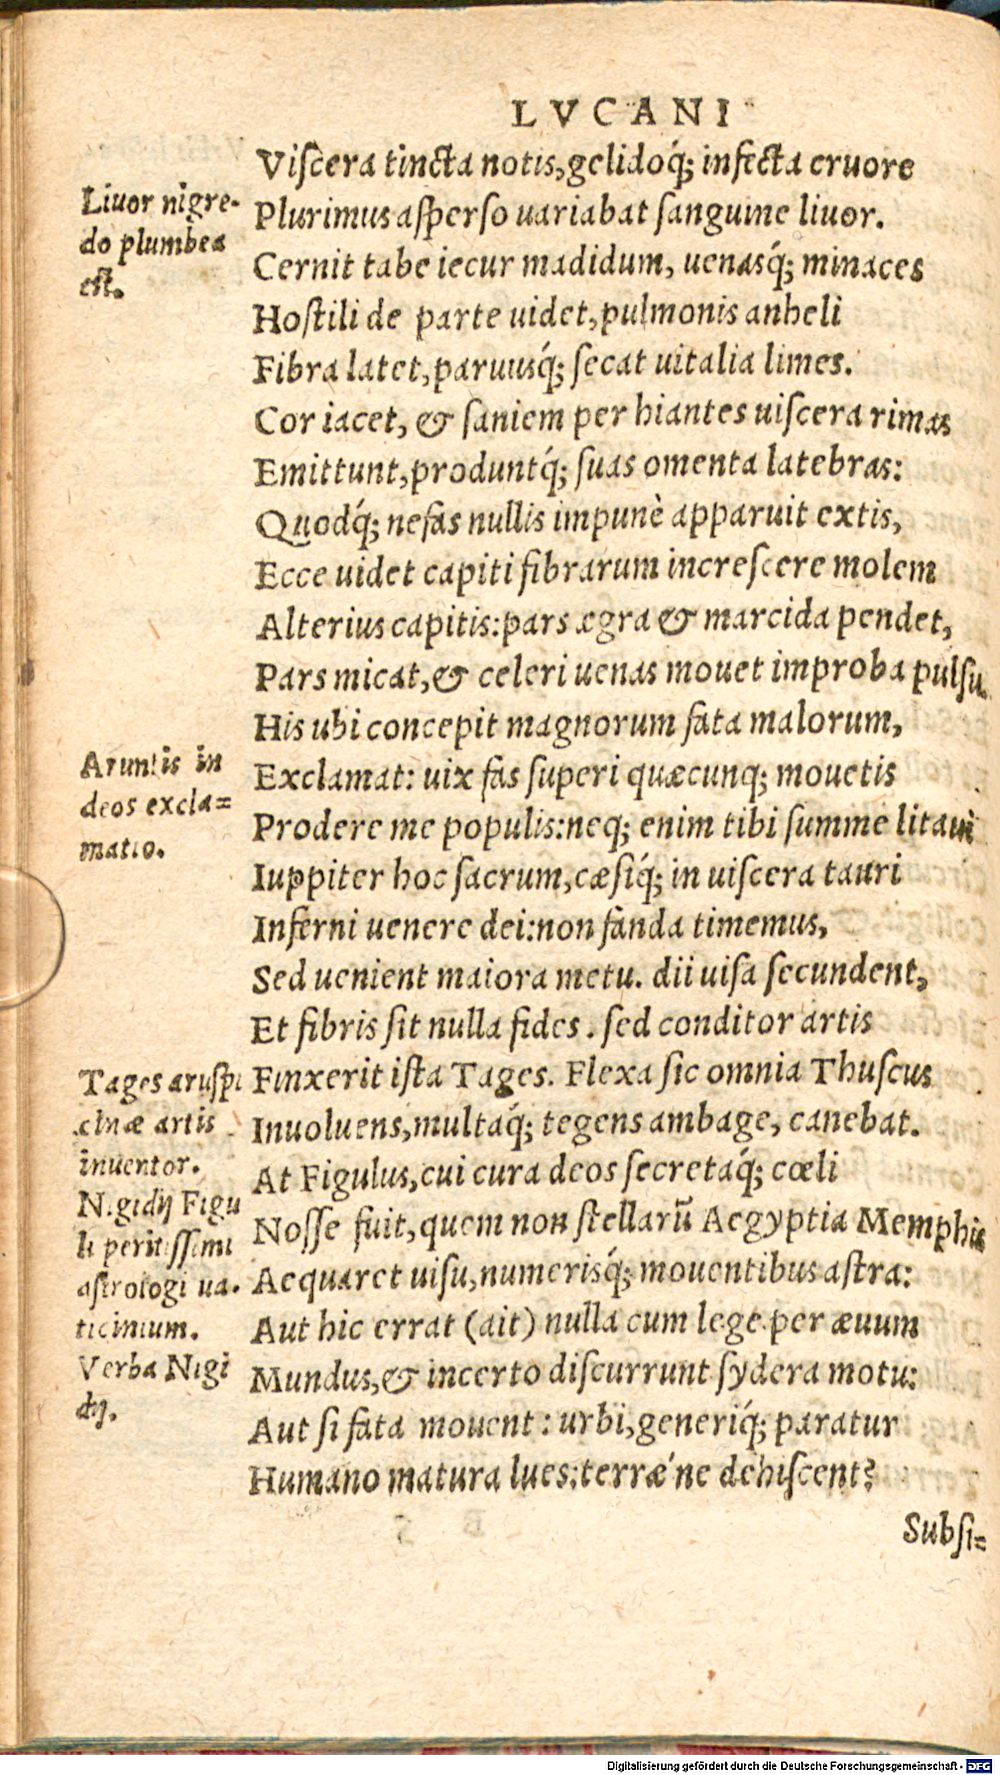 LVCANI
Viscera tincta notis, gelidoq́; infecta cruore
Liuor nigre-
do plumbea
est.
Plurimus asperso uariabat sanguine liuor.
Cernit tabe iecur madidum, uenasq́; minaces
Hostili de parte uidet, pulmonis anheli
Fibra latet, paruusq́; secat uitalia limes.
Cor iacet, & saniem per hiantes uiscera rimas
Emittunt, produntq́; suas omenta latebras:
Quodq́; nefas nullis impunè apparuit extis,
Ecce uidet capiti fibrarum increscere molem
Alterius capitis: pars ægra & marcida pendet,
Pars micat, & celeri uenas mouet improba pulsu.
His ubi concepit magnorum fata malorum,
Aruntis in
deos excla=
matio.
Exclamat: uix fas superi quæcunq; mouetis
Prodere me populis: neq; enim tibi summe litaui
Iuppiter hoc sacrum, cæsiq́; in uiscera tauri
Inferni uenere dei: non fanda timemus,
Sed uenient maiora metu. dii uisa secundent,
Et fibris sit nulla fides. sed conditor artis
Tages aruspi
cinæ artis
inuentor.
Finxerit ista Tages. Flexa sic omnia Thuscus
Inuoluens, multaq́; tegens ambage, canebat.
At Figulus, cui cura deos secretaq́; cœli
N.gidij Figu
li peritissimi
astrologi ua-
ticinium.
Nosse fuit, quem non stellarũ Aegyptia Memphis
Aequaret uisu, numerisq́; mouentibus astra:
Aut hic errat (ait) nulla cum lege per æuum
Verba Nigi
dij.
Mundus, & incerto discurrunt sydera motu:
Aut si fata mouent: urbi, generiq́; paratur
Humano matura lues: terræ´ne dehiscent?
Subsi=
Digitalisierung gefördert durch die Deutsche Forschungsgemeinschaft - DFG